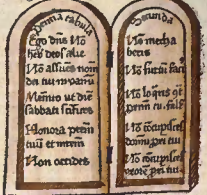 Prima tabula
Ego dñs No
hẽs deos aliẽ
No assũes nomẽ
dei tui ĩ vanũ
Memẽto ut diẽ
sabbati sc̃ifices
Honora patrẽ
tuũ et matrẽ
Non occides
Secunda
No mecha
beris
No furtũ facĩ
No loq̃ris
ꝓximũ tu. fals
No cõcupisces
domũ pxi tui
No cõcupisces
uxorẽ pxi tui